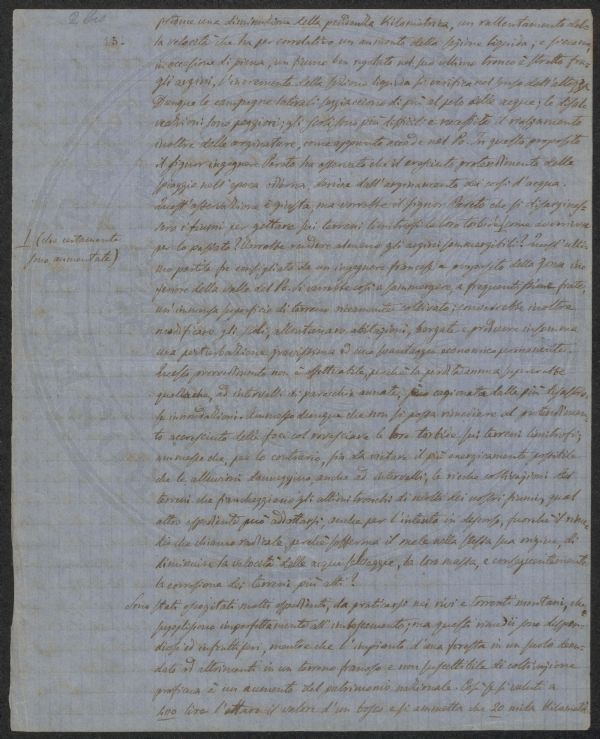 2 bis
15.
produce una diminuzione della pendenza Kilometrica, un rallentamento del
la velocità che ha per correlativo un aumento della sezione liquida, e siccome
in occasione di piena, un fiume ben regolato nel suo ultimo tronco è stretto fra
gli argini, l'incremento della sezione liquida si verifica nel senso dell'altezza.
Dunque le campagne laterali soggiacciono di più al pelo delle acque; le
sono peggiori; gli scoli sono più difficili e necessita il rialzamento
inoltre delle arginature, come appunto accade nel Po. In questo proposito
il signor ingegnere Pareto ha osservato che il crescente protendimento delle
spiaggie nell'epoca odierna, deriva dall'arginamento dei corsi d'acqua.
Quest'osservazione è giusta, ma vorrebbe il signor Pareto che si disarginas
sero i fiumi per gettare sui terreni limitrofi le loro torbide, come avveniva
per lo passato? Vorrebbe rendere almeno gli argini sommergibili? Quest'ulti
mo partito fu consigliato da un ingegnere francese a proposito della zona in
feriore della valle del Po. Si verrebbe così a sommergere, a frequenti
un'immensa superficie di terreno riccamente coltivato; converrebbe inoltre
modificare gli scoli, allontanare abitazioni, borgate e produrre insomma
una perturbazione gravissima ed uno svantaggio economico permanente.
provvedimento non è effettuabile, perchè la perdita annua supererebbe
quella che, ad intervalli di parecchie annate, può cagionata dalle più disastro
se inondazioni. Ammesso dunque che non si possa rimediare al protendimen
to accresciuto delle foci col rovesciare le loro torbide sui terreni limitrofi;
ammesso che, per lo contrario, sia da evitare il più energicamente possibile
che le alluvioni danneggino anche ad intervalli, le ricche coltivazioni dei
terreni che fiancheggiano gli ultimi tronchi di molti dei nostri fiumi, qual
altro espediente può adottarsi, anche per l'intento in discorso, fuorchè il rime
dio che chiamo radicale, perchè sofferma il male nella stessa sua origine, di
diminuire la velocità delle acque selvaggie, la loro massa, e conseguentemente
la corrosione dei terreni più alti?
Sono stati escogitati molti espedienti, da praticarsi nei rivi e torrenti montani, che
suppliscono imperfettamente all'imboscamento; ma questi rimedii sono dispen
diosi ed infruttiferi, mentre che l'impianto d'una foresta in un suolo denu
dato od altrimenti in un terreno franoso e non suscettibile di coltivazione
proficua è un aumento del patrimonio nazionale. Così se si valuti a
400 lire l'ettaro il valore d'un bosco e si ammetta che 20 mila Kilometri
(che certamente
sono aumentate)